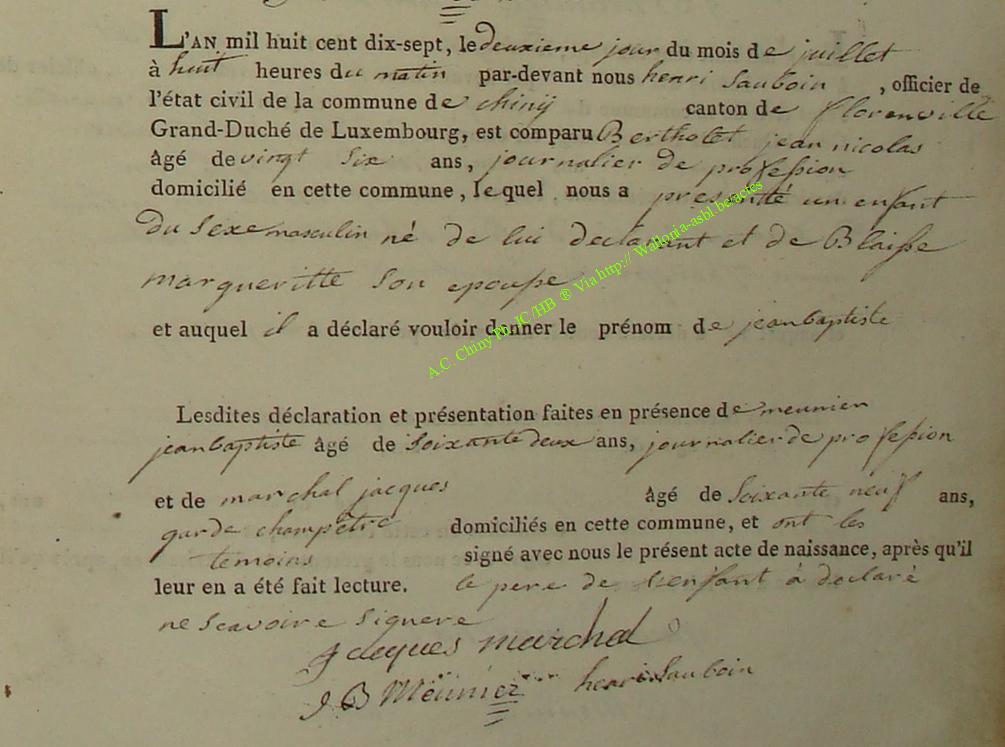 L'AN mil huit cent dix-sept, le deuxieme jour du mois de juillet
à huit heures du matin par-devant nous henri Sauboin , officier de
l'état civil de la commune de chinÿ canton de florenville
Grand-Duché de Luxembourg, est comparu Bertholet jean nicolas
âgé de vingt six ans, journalier de profession
domicilié en cette commune, lequel nous a presentté un enfant
du sexe masculin né de lui declarant et de Blaisse
margueritte son epousse
et auquel il a déclaré vouloir donner le prénom de jean baptiste
A.C. Chiny Ph. JC/HB ® Via http:// Wallonia-asbl.be/actes
Lesdites déclaration et présentation faites en présence de meunier
jean baptiste âgé de soixante deux ans, journalier de profession
et de marchal jacques âgé de soixante neuf ans,
garde champetre domiciliés en cette commune, et ont les
temoins signé avec nous le présent acte de naissance, après qu'il
leur en a été fait lecture. le pere de l'enfant à declaré
ne scavoire signere
Jacques marchal
J B Meunier henri Sauboin